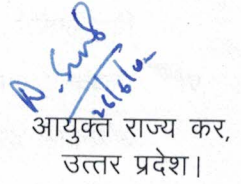 आयुक्त राज्य कर,
उत्तर प्रदेश।